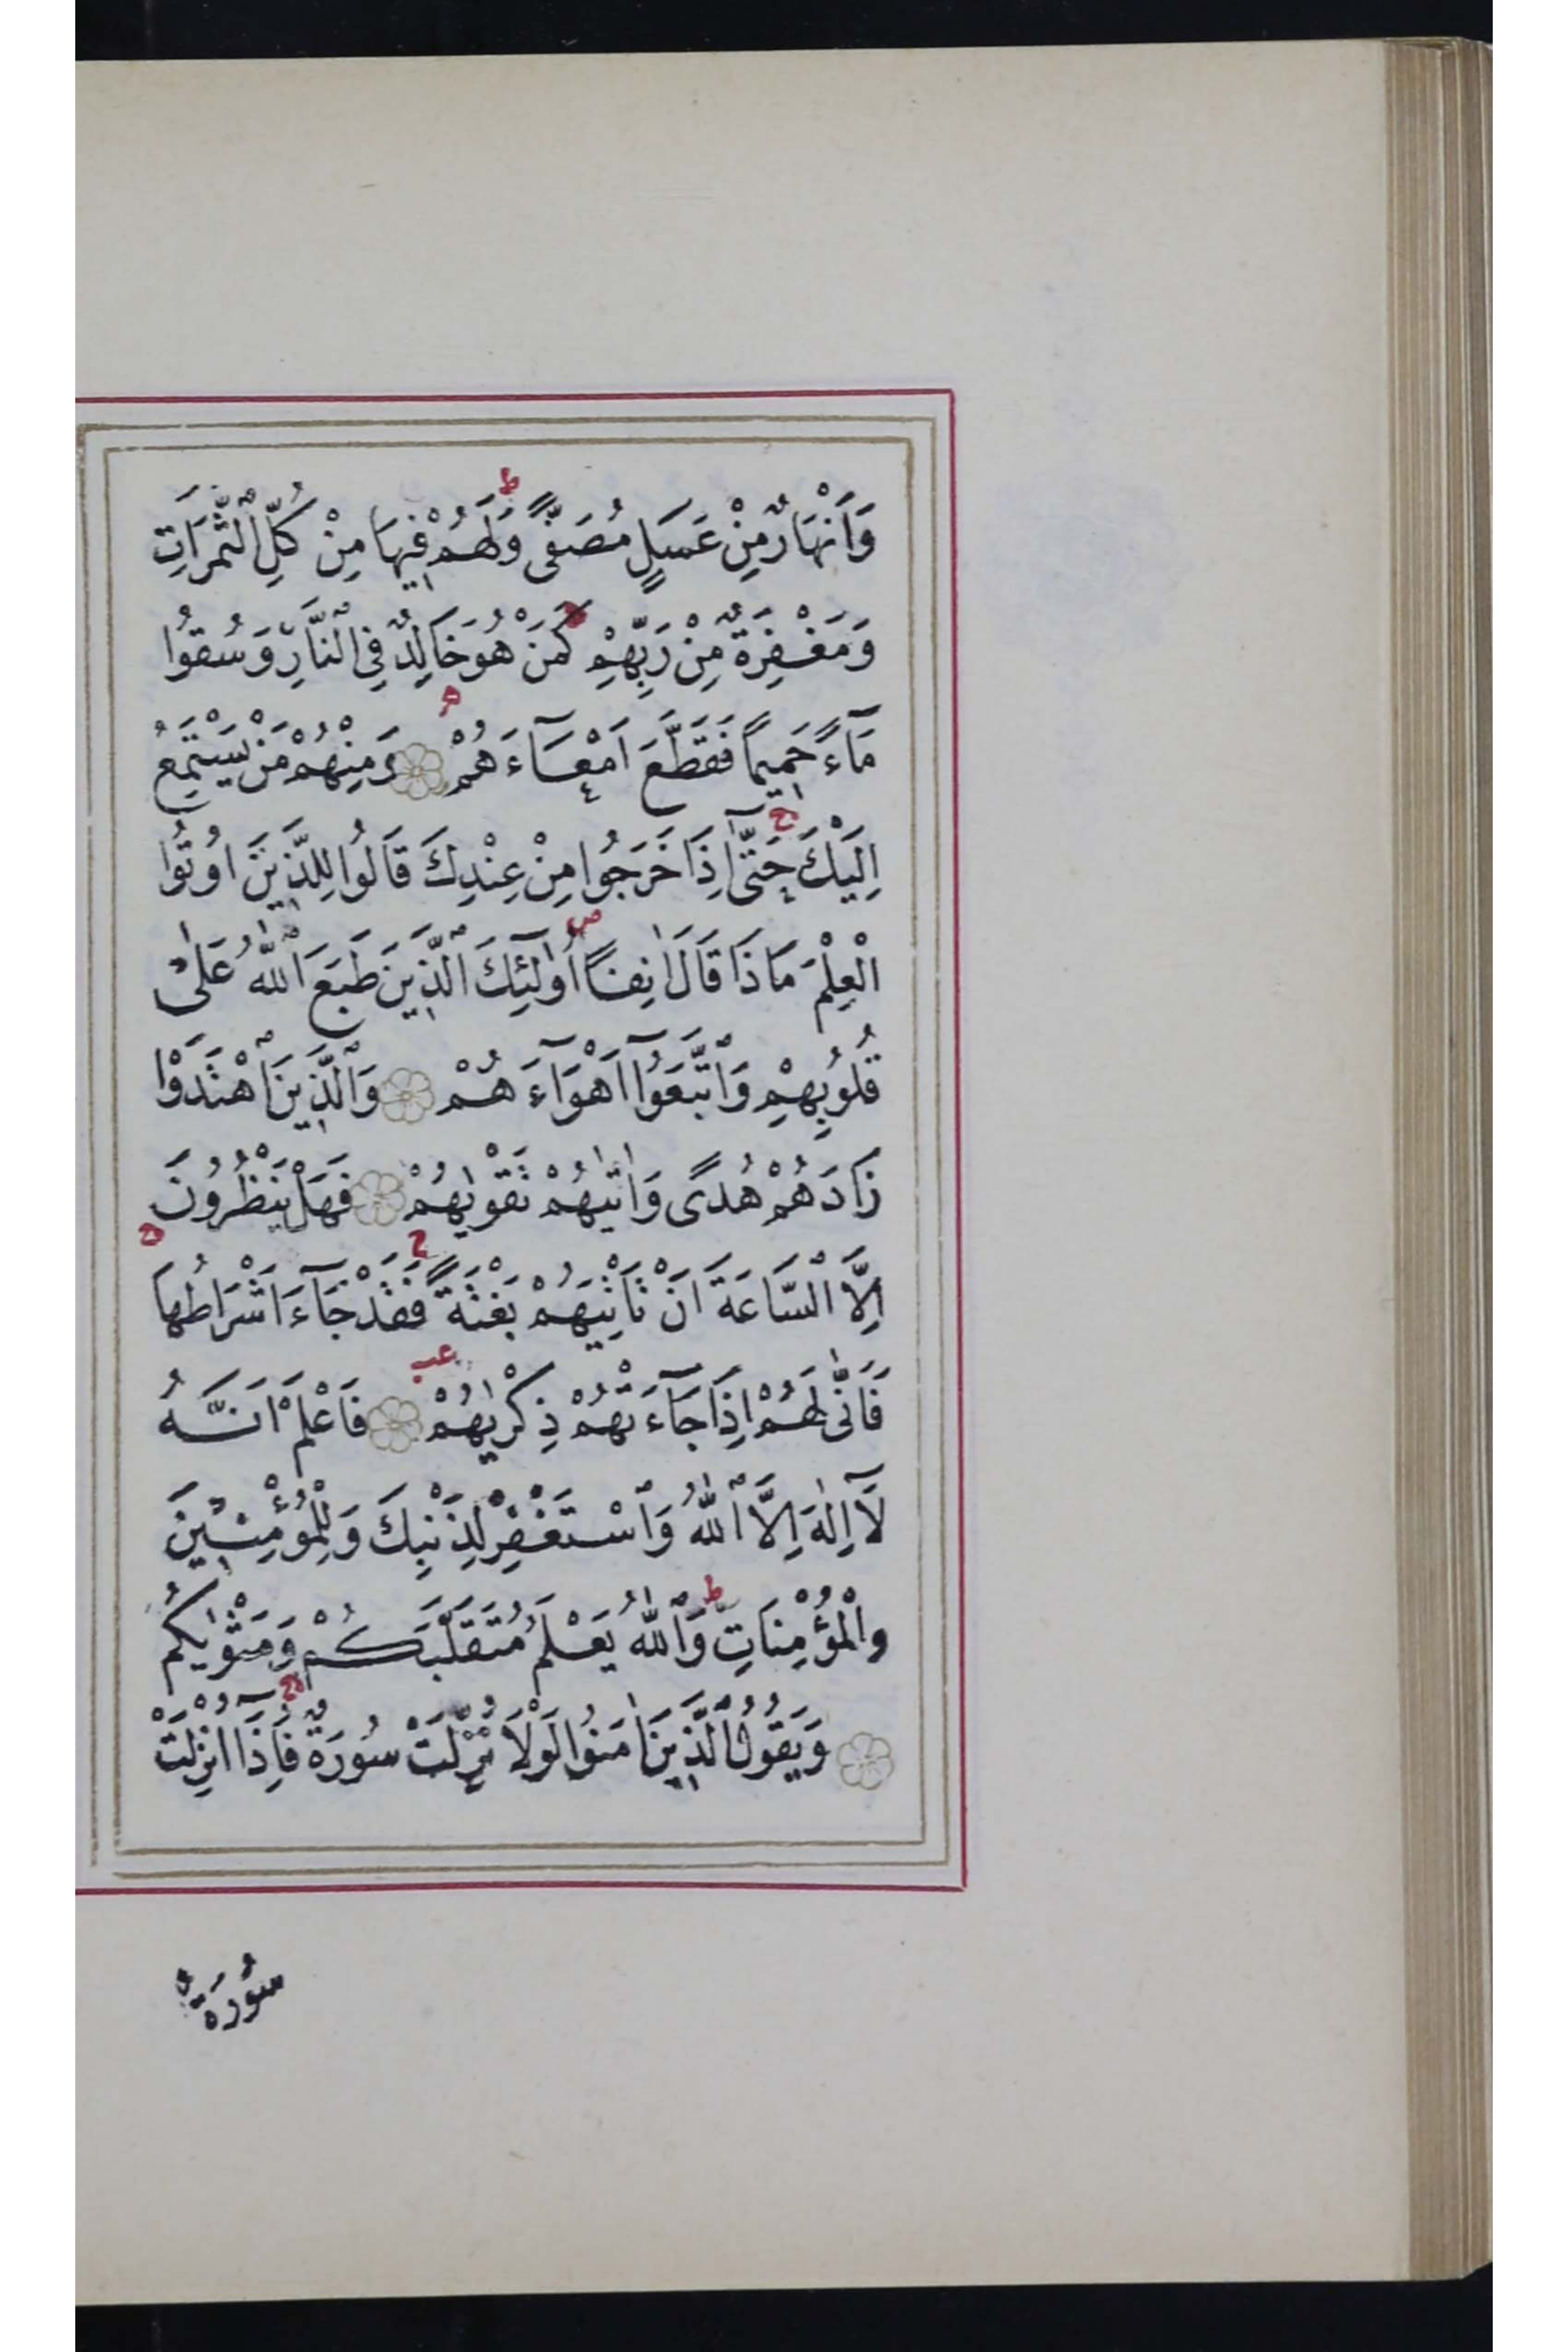 وَاَنْهَارٌ مِنْ عَسَلٍ مُصَفًّى ط وَلَهُمْ فِيهَا مِنْ كُلِّ الثَّمَرَاتِ
وَمَغْفِرَةٌ مِنْ رَبِّهِمْ كَمَنْ هُوَ خَالِدٌ فِي النَّارِ وَسُقُوا
مَآءً حَمِيمًا فَقَطَّعَ اَمْعَآءَهُمْ وَمِنْهُمْ مَنْ يَسْتَمِعُ
اِلَيْكَ ج حَتّٰٓى اِذَا خَرَجُوا مِنْ عِنْدِكَ قَالُوا لِلَّذِينَ اُوتُوا
الْعِلْمَ مَاذَا قَالَ اٰنِفًا اُولٰٓئِكَ الَّذِينَ طَبَعَ اللّٰهُ عَلٰى
قُلُوبِهِمْ وَاتَّبَعُوٓا اَهْوَآءَهُمْ وَالَّذِينَ اهْتَدَوْا
زَادَهُمْ هُدًى وَاٰتٰيهُمْ تَقْوٰيهُمْ فَهَلْ يَنْظُرُونَ
اِلَّا السَّاعَةَ اَنْ تَاْتِيَهُمْ بَغْتَةً ج فَقَدْ جَآءَ اَشْرَاطُهَا ج
فَاَنّٰى لَهُمْ اِذَا جَآءَتْهُمْ ذِكْرٰيهُمْ عب فَاعْلَمْ اَنَّهُ
لَآ اِلٰهَ اِلَّا اللّٰهُ وَاسْتَغْفِرْ لِذَنْبِكَ وَلِلْمُؤْمِنِينَ
وَالْمُؤْمِنَاتِ ط وَاللّٰهُ يَعْلَمُ مُتَقَلَّبَكُمْ وَمَثْوٰيكُمْ
وَيَقُولُ الَّذِينَ اٰمَنُوا لَوْلَا نُزِّلَتْ سُورَةٌ ج فَاِذَٓا اُنْزِلَتْ
سُورَةٌ